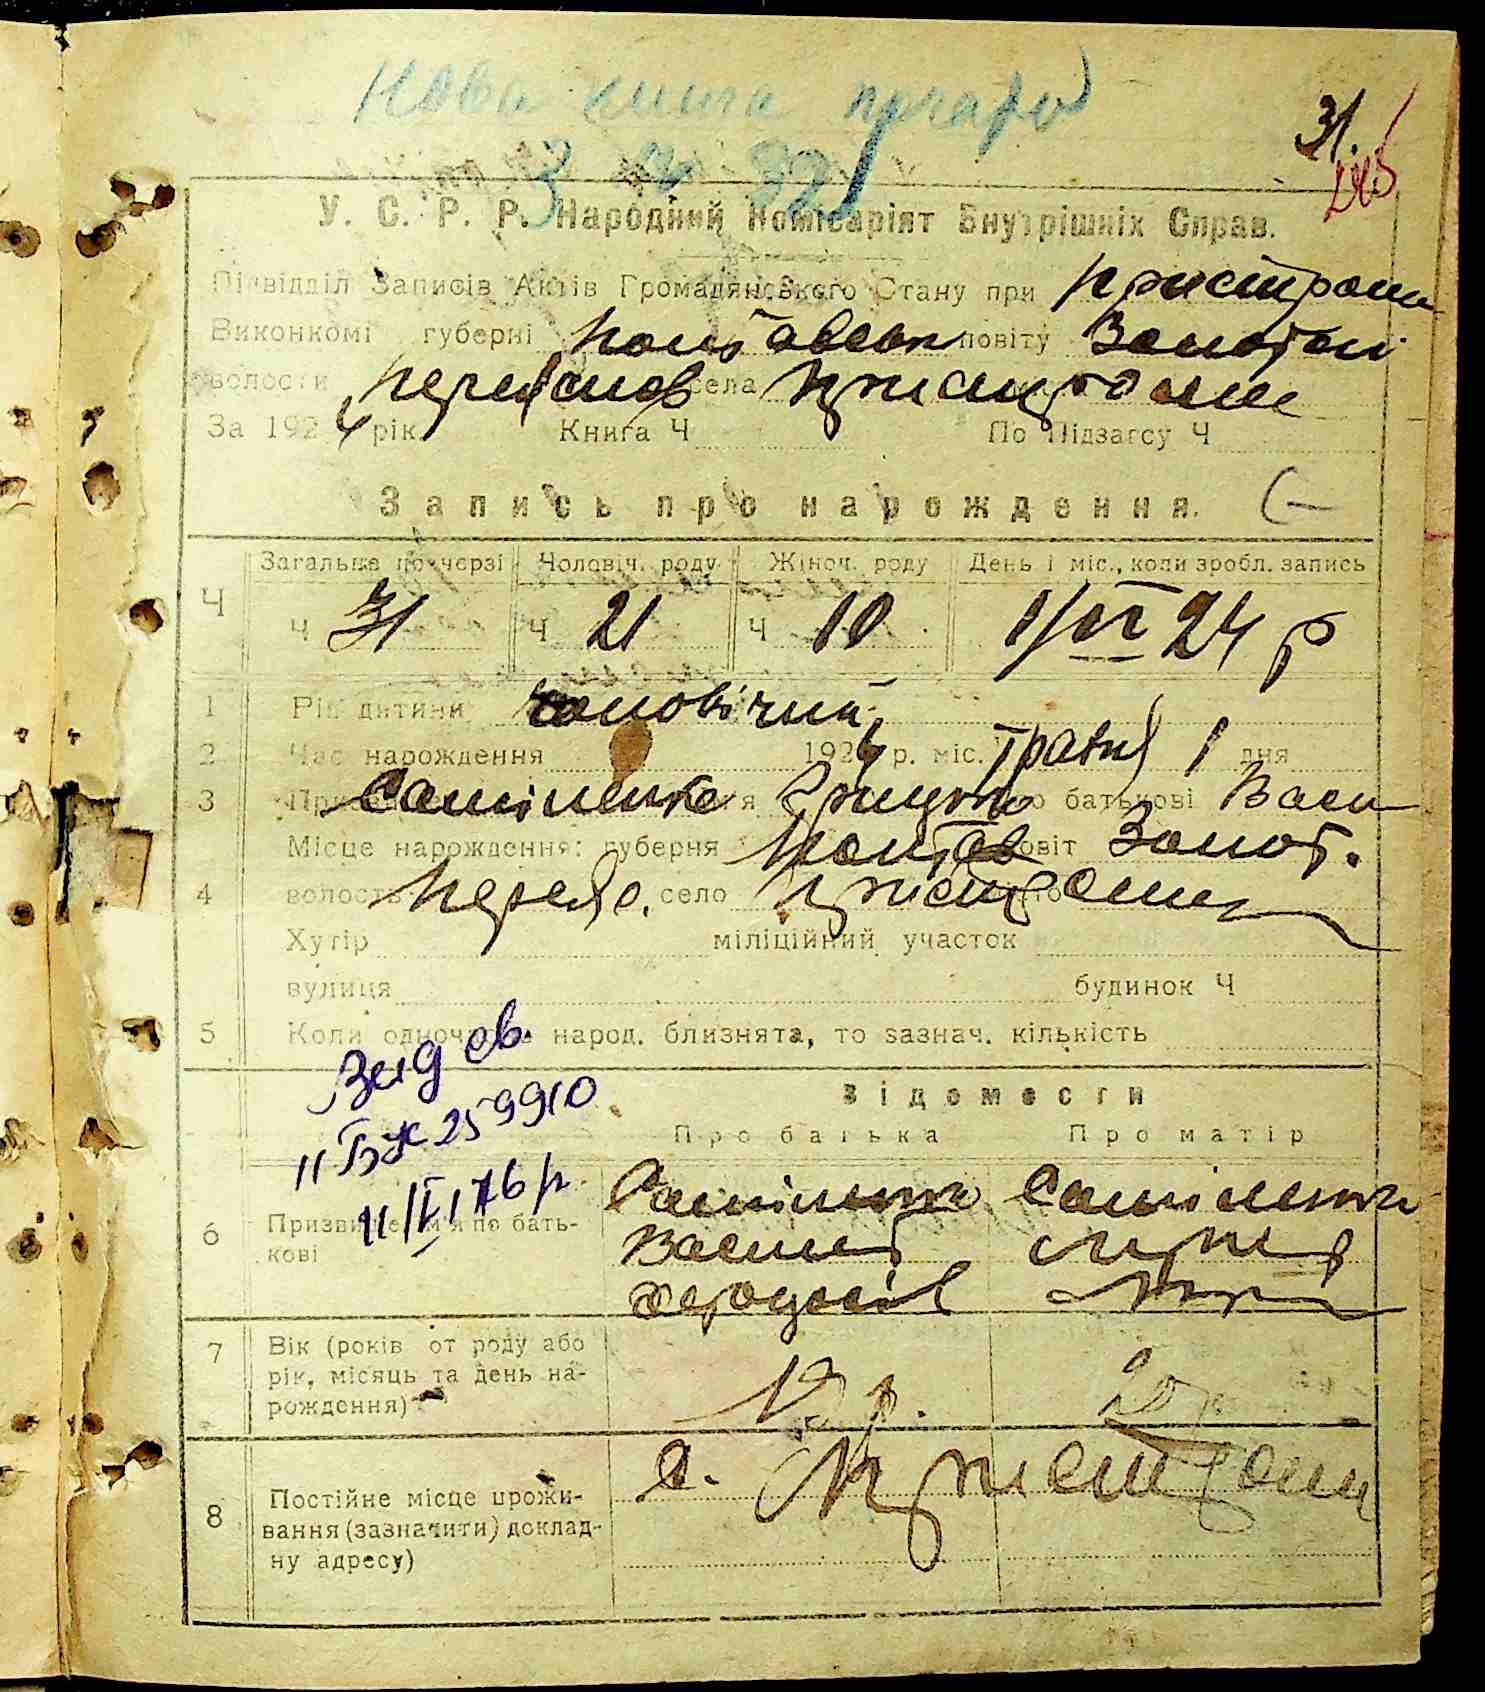 Нова книга
31.
У. С. Р. Р. Народний Комісаріят Внутрішніх Справ.
Підвідділ Записів Актів Громадянського Стану при Пристром
Виконкомі губерні Полтавськ повіту Золотон
волости Переяслов села Пристроми
За 1924 рік. Книга Ч По Підзагсу Ч
Запись про нарождення.
Загальне по черзі Чоловіч. роду Жіноч. роду День і міс., коли зробл. запись
Ч Ч 31 Ч 21 Ч 10 1/VI 24 р
1 Рід дитини чоловічий
2 Час нарождення 1924 р. міс. Травня 1 дня
3 Самійленко Грицько по батькові Васи
Місце нарождення: губерня Полтав повіт Золот.
4 волость Переяс. село Пристроми
Хутір міліційний участок
вулиця будинок Ч
5 Коли одночасно народ. близнята, то зазнач. кількість
Вид св.
ІІ БЖ 259910
Відомости
Про батька Про матір
11/VI 76 р.
6 Призвище, ім'я по батькові Самійленко Самійленко
Василь
7 Вік (років от роду або
рік, місяць та день на-
рождення)
8 Постійне місце прожи-
вання (зазначити) доклад-
ну адресу)
с. Пристроми